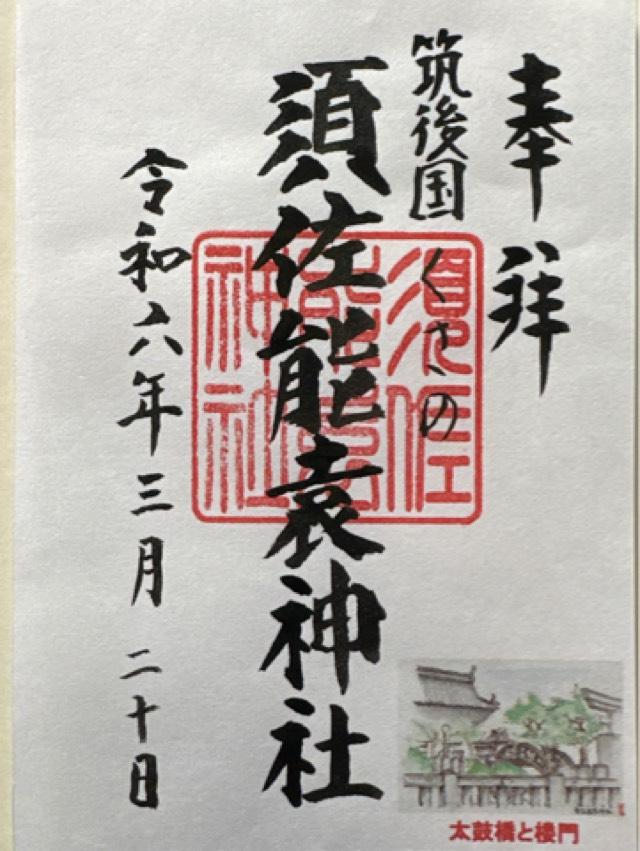 奉拝
筑後国 くさの
須佐能袁神社
須佐
能袁
神社
令和六年三月二十日
太鼓橋と楼門